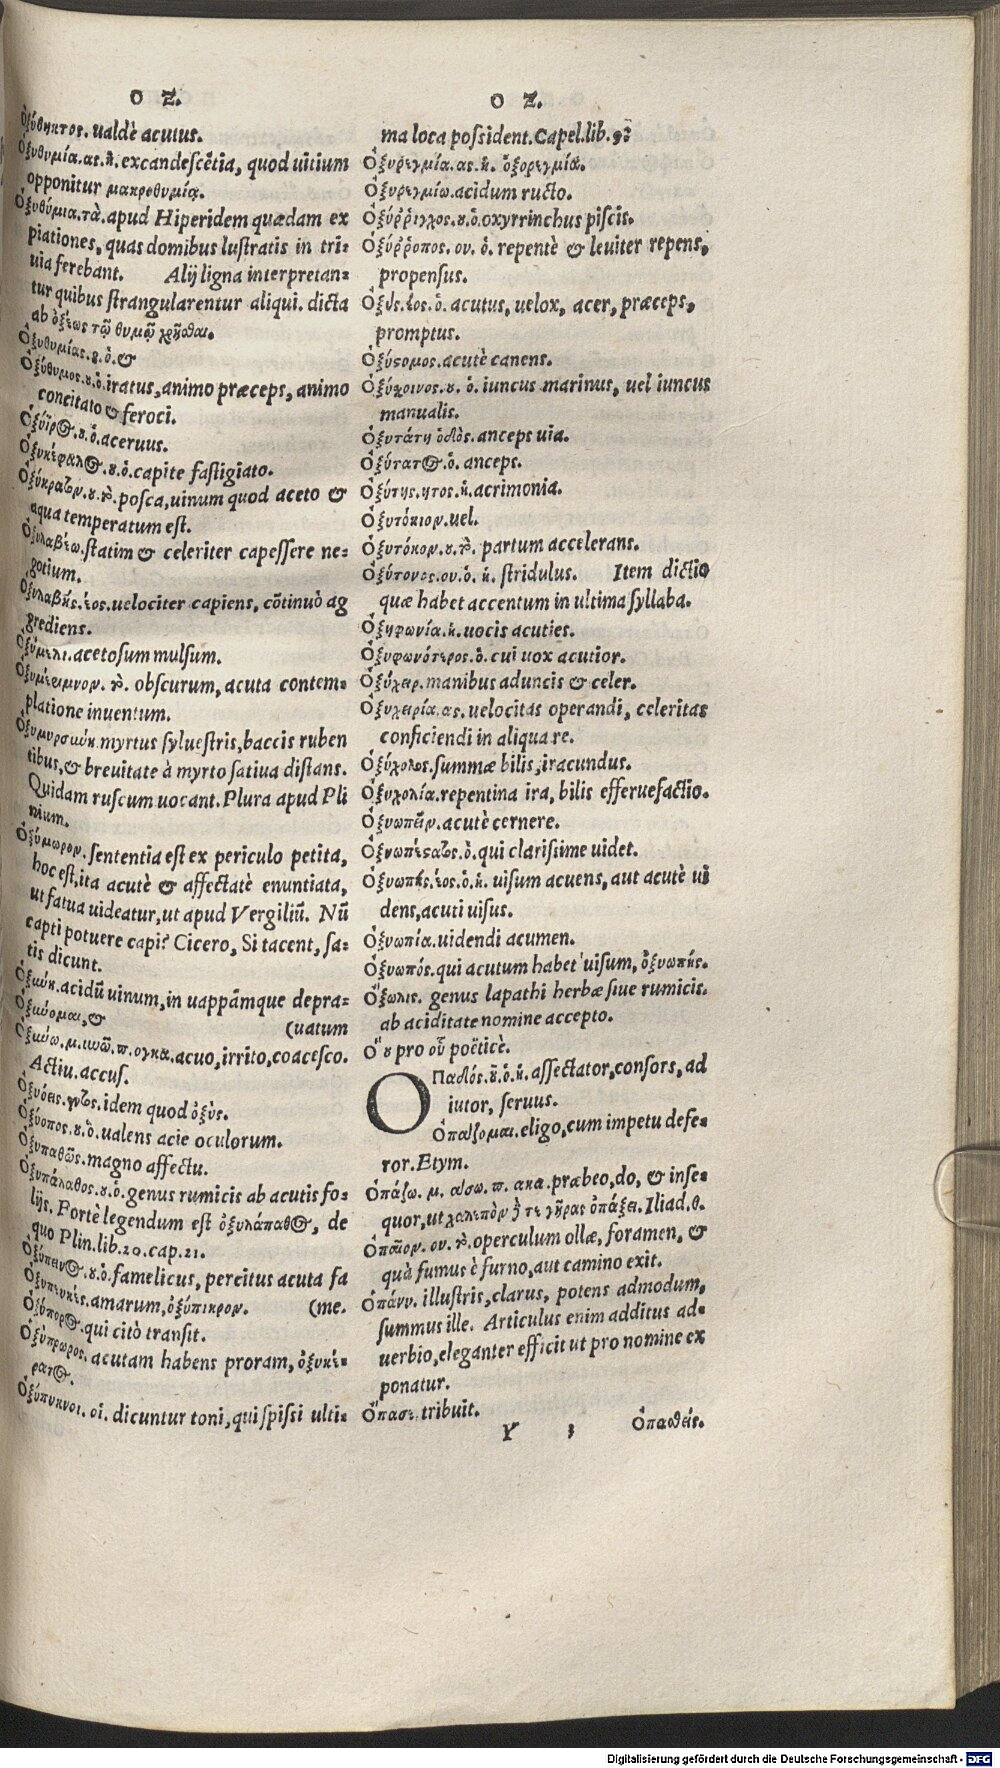 Ο Ζ.
ὀξύθηκτος. ualdè acutus.
Ὀξυθυμία.ας.ἡ. excandescẽtia, quod uitium
opponitur μακροθυμίᾳ.
Ὀξυθύμια.τὰ. apud Hiperidem quædam ex
piationes, quas domibus lustratis in tri-
uia ferebant. Alij ligna interpretan-
tur quibus strangularentur aliqui. dicta
ab ὀξέως τῷ θυμῷ χρῆσθαι.
Ὀξυθυμίας.ου.ὁ. &
Ὀξύθυμος.ου.ὁ. iratus, animo præceps, animo
concitato & feroci.
Ὀξύϊρος.ου.ὁ. aceruus.
Ὀξυκέφαλος.ου.ὁ. capite fastigiato.
Ὀξύκρατον.ου.τὸ. posca, uinum quod aceto &
aqua temperatum est.
Ὀξυλαβέω. statim & celeriter capessere ne-
gotium.
Ὀξυλαβής.έος. uelociter capiens, cõtinuò ag
grediens.
Ὀξύμελι. acetosum mulsum.
Ὀξυμέριμνον.τὸ. obscurum, acuta contem-
platione inuentum.
Ὀξυμυρσίνη. myrtus syluestris, baccis ruben
tibus, & breuitate à myrto satiua distans.
Quidam ruscum uocant. Plura apud Pli
nium.
Ὀξύμωρον. sententia est ex periculo petita,
hoc est, ita acutè & affectatè enuntiata,
ut fatua uideatur, ut apud Vergiliũ. Nũ
capti potuere capi? Cicero, Si tacent, sa-
tis dicunt.
Ὀξίνη. acidũ uinum, in uappãmque depra-
Ὀξύνομαι, & (uatum
Ὀξύνω.μ.υνῶ.π.ογκα. acuo, irrito, coacesco.
Actiu. accus.
Ὀξυόεις.εντος. idem quod ὀξὺς.
Ὀξύοπος.ου.ὁ. ualens acie oculorum.
Ὀξυπαθῶς. magno affectu.
Ὀξυπάλαθος.ου.ὁ. genus rumicis ab acutis fo-
lijs. Fortè legendum est ὀξυλάπαθος, de
quo Plin.lib.20.cap.21.
Ὀξύπεινος.ου.ὁ. famelicus, percitus acuta fa
Ὀξυπευκές. amarum, ὀξύπικρον. (me.
Ὀξύπορος. qui citò transit.
Ὀξύπρωρος. acutam habens proram, ὀξυκέ-
ρατος.
Ὀξύπυκνοι. οἱ. dicuntur toni, qui spissi ulti-
Ο Ζ.
ma loca possident. Capel.lib.9?
Ὀξυρεγμία.ας.ἡ. ὀξορεγμία.
Ὀξυρεγμίω. acidum ructo.
Ὀξύῤῥιγχος.ου.ὁ. oxyrrinchus piscis.
Ὀξύῤῥοπος.ου.ὁ. repentè & leuiter repens,
propensus.
Ὀξὺς.έος.ὁ. acutus, uelox, acer, præceps,
promptus.
Ὀξύστομος. acutè canens.
Ὀξύχοινος.ου.ὁ. iuncus marinus, uel iuncus
manualis.
Ὀξυτάτη ὁδὸς. anceps uia.
Ὀξύτατος.ὁ. anceps.
Ὀξύτης.ητος.ἡ. acrimonia.
Ὀξυτόκιον. uel.
Ὀξυτόκον.ου.τὸ. partum accelerans.
Ὀξύτονος.ου.ὁ.ἡ. stridulus. Item dictio
quæ habet accentum in ultima syllaba.
Ὀξηφωνία.ἡ. uocis acuties.
Ὀξυφωνότερος.ὁ. cui uox acutior.
Ὀξύχειρ. manibus aduncis & celer.
Ὀξυχειρία.ας. uelocitas operandi, celeritas
conficiendi in aliqua re.
Ὀξύχολος. summæ bilis, iracundus.
Ὀξυχολία. repentina ira, bilis efferuefactio.
Ὀξυωπεῖν. acutè cernere.
Ὀξυωπέστατος.ὁ. qui clarissime uidet.
Ὀξυωπής.έος.ὁ.ἡ. uisum acuens, aut acutè ui
dens, acuti uisus.
Ὀξυωπία. uidendi acumen.
Ὀξυωπός. qui acutum habet uisum, ὀξυωπής.
Ὄξωλις. genus lapathi herbæ siue rumicis.
ab aciditate nomine accepto.
Ὅου pro οὗ poëticè.
Ὀπαδός.οῦ.ὁ.ἡ. assectator, consors, ad
iutor, seruus.
Ὀπάζομαι. eligo, cum impetu defe-
ror. Etym.
Ὀπάζω.μ.άσω.π.ακα. præbeo, do, & inse-
quor, ut χαλεπὸν δέ τε γῆρας ὀπάζει. Iliad.θ.
Ὀπαῖον.ου.τὸ. operculum ollæ, foramen, &
quà fumus è furno, aut camino exit.
Ὁπάνυ. illustris, clarus, potens admodum,
summus ille. Articulus enim additus ad-
uerbio, eleganter efficit ut pro nomine ex
ponatur.
Ὤπασε. tribuit.
Y 3 Ὀπασθείς.
Digitalisierung gefördert durch die Deutsche Forschungsgemeinschaft - DFG